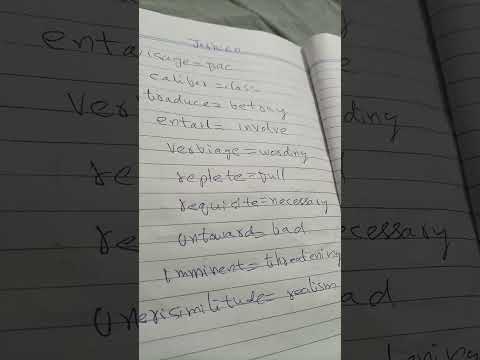 visage = face
caliber = class
traduce = betray
entail = involve
verbiage = wording
replete = full
requisite = necessary
untoward = bad
imminent = threatening
verisimilitude = realism